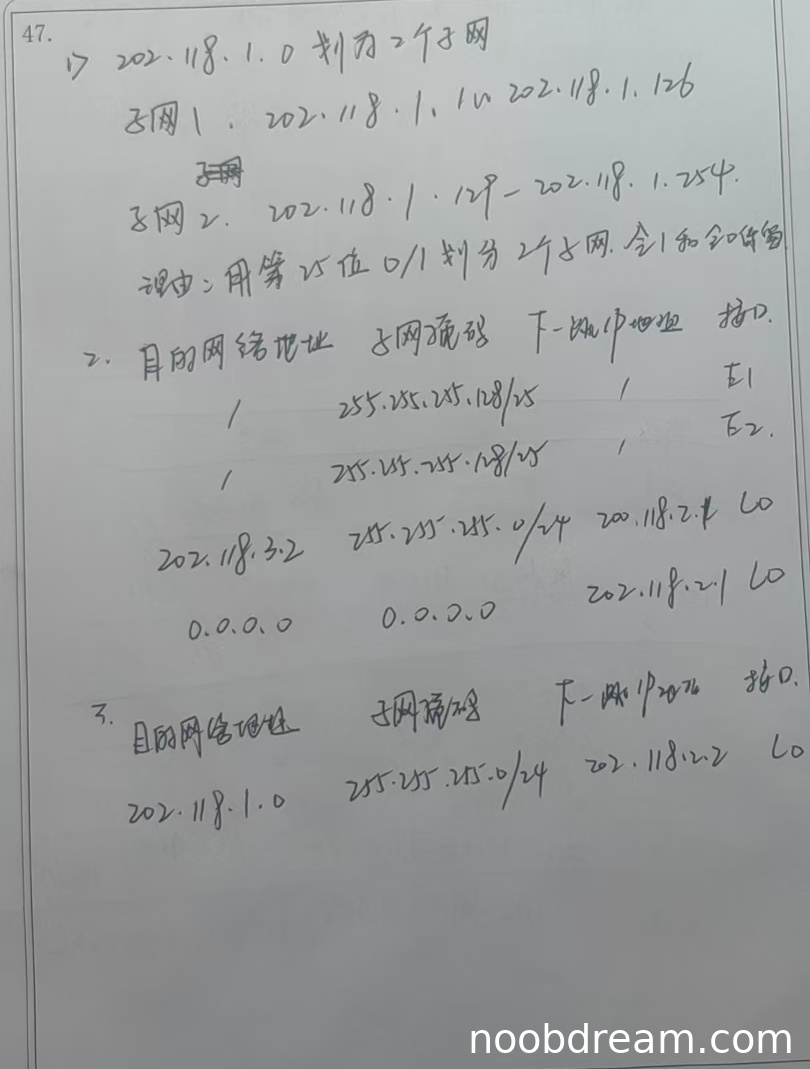 47.
1) 202.118.1.0 划为2个子网
子网1. 202.118.1.1~202.118.1.126
子网2. 202.118.1.129-202.118.1.254.
理由:用第25位0/1划分2个子网.全1和全0保留
2. 目的网络地址 子网掩码 下一跳IP地址 接口.
/ 255.255.255.128/25 / E1
/ 255.255.255.128/25 / E2.
202.118.3.2 255.255.255.0/24 200.118.2.1 L0
0.0.0.0 0.0.0.0 202.118.2.1 L0
3. 目的网络地址 子网掩码 下一跳IP地址 接口.
202.118.1.0 255.255.255.0/24 202.118.2.2 L0
noobdream.com